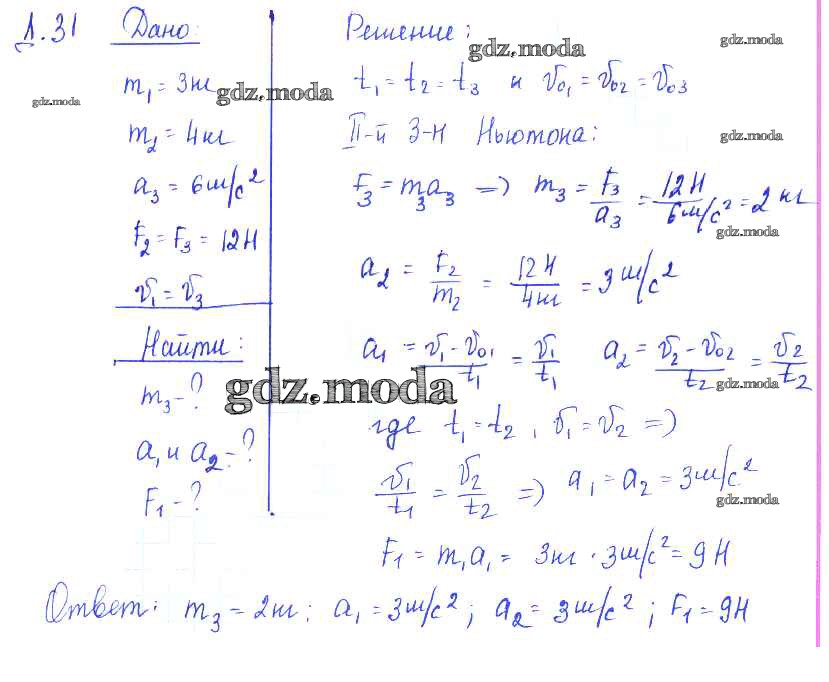 Д.31 Дано:
m₁ = 3кг
m₂ = 4кг
a₃ = 6м/с²
F₂ = F₃ = 12Н
v₁ = v₃
Найти:
m₃ - ?
a₁ и a₂ - ?
F₁ - ?
Решение:
t₁ = t₂ = t₃ и v₀₁ = v₀₂ = v₀₃
II-й З-н Ньютона:
F₃ = m₃a₃ => m₃ = F₃/a₃ = 12Н/6м/с² = 2кг
a₂ = F₂/m₂ = 12Н/4кг = 3м/с²
a₁ = v₁ - v₀₁/t₁ = v₁/t₁ a₂ = v₂ - v₀₂/t₂ = v₂/t₂
где t₁ = t₂, v₁ = v₂ =>
v₁/t₁ = v₂/t₂ => a₁ = a₂ = 3м/с²
F₁ = m₁a₁ = 3кг · 3м/с² = 9Н
Ответ: m₃ = 2кг; a₁ = 3м/с²; a₂ = 3м/с²; F₁ = 9Н
gdz.moda
gdz.moda
gdz.moda
gdz.moda
gdz.moda
gdz.moda
gdz.moda
gdz.moda
gdz.moda